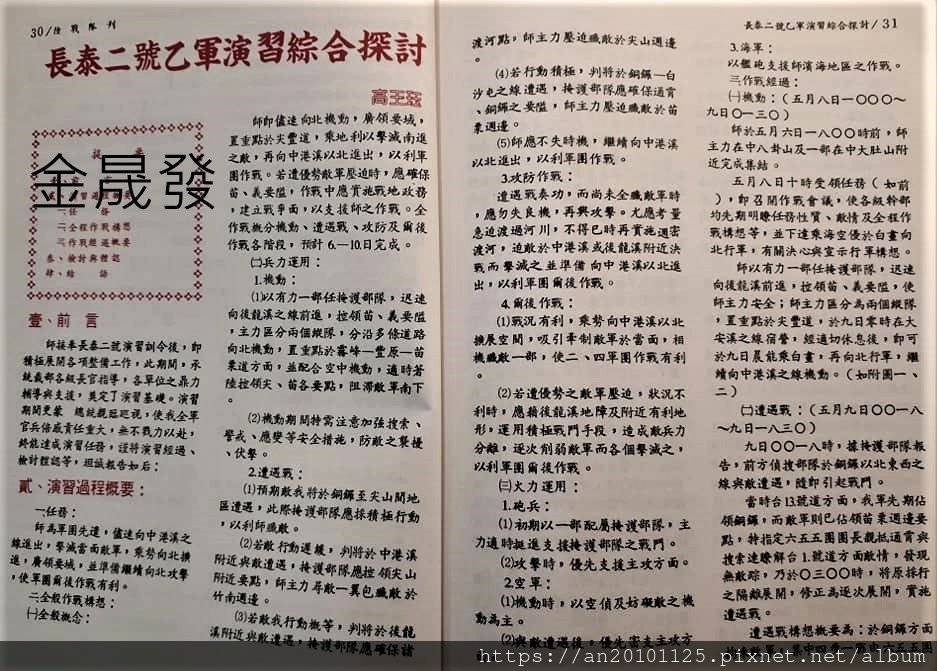 30/陸戰隊刊
長泰二號乙軍演習綜合探討
高王珏
金晟發
提 要
一任 務
二全程作戰構想
三作戰經過概要
叁、檢討與體認
肆、結 語
壹、前 言
師接奉長泰二號演習訓令後,即
積極展開各項整備工作,此期間,承
輔導與支援,奠定了演習基礎。演習
期間更蒙 總統親臨巡視,使我全軍
官兵倍感責任重大,無不戮力以赴,
終能達成演習任務,謹將演習經過、
檢討體認等,坦誠報告如后:
貳、演習過程概要:
一任務:
師為軍團先遣,儘速向中港溪之
線進出,擊滅當面敵軍,乘勢向北擴
進,廣領要域,並準備繼續向北攻擊
,使軍團爾後作戰有利。
二全般作戰構想:
㈠全般概念:
師即儘速向北機動,廣領要域,
置重點於尖豐道,乘地利以擊滅南進
之敵,再向中港溪以北進出,以利軍
團作戰。若遭優勢敵軍壓迫時,應確保
苗、義要隘,作戰中應實施戰地政務
,建立戰爭面,以支援師之作戰。全
作戰概分機動、遭遇戰、攻防及爾後
作戰各階段,預計6.—10.日完成。
㈡兵力運用:
1.機動:
⑴以有力一部任掩護部隊,迅速
向後龍溪之線前進,控領苗、義要隘
,主力區分兩個縱隊,分沿多條道路
向北機動,置重點於霧峰—豐原—苗
栗道方面,並配合空中機動,適時著
陸控領尖、苗各要點,阻滯敵軍南下
。
⑵機動期間特需注意加強搜索、
警戒、應變等安全措施,防敵之襲擾
、伏擊。
2.遭遇戰:
⑴預期敵我將於銅鑼至尖山間地
區遭遇,此際掩護部隊應採積極行動
,以利師殲敵。
⑵若敵行動遲緩,判將於中港溪
附近與敵遭遇,掩護部隊應控領尖山
附近要點,師主力尋敵一翼包殲敵於
竹南週邊。
⑶若敵我行動概等,判將於後龍
溪附近與敵遭遇,掩護部隊應確保諸
渡河點,師主力壓迫殲敵於尖山週邊
。
⑷若行動積極,判將於銅鑼—白
沙屯之線遭遇,掩護部隊應確保通霄
、銅鑼之要隘,師主力壓迫殲敵於苗
栗週邊。
⑸師應不失時機,繼續向中港溪
以北進出,以利軍團作戰。
3.攻防作戰:
遭遇戰奏功,而尚未全殲敵軍時
,應勿失良機,再興攻擊。尤應考量
急迫渡過河川,不得已時再實施週密
渡河,迫敵於中港溪或後龍溪附近決
戰而擊滅之並準備向中港溪以北進
出,以利軍團爾後作戰。
4.爾後作戰:
⑴戰況有利,乘勢向中港溪以北
擴展空間,吸引牽制敵軍於當面,相
機殲敵一部,使二、四軍團作戰有利
。
⑵若遭優勢之敵軍壓迫,狀況不
利時,應藉後龍溪地障及附近有利地
形,運用積極戰鬥手段,造成敵兵力
分離,逐次削弱敵軍而各個擊滅之,
以利軍團爾後作戰。
㈢火力運用:
1.砲兵:
⑴初期以一部配屬掩護部隊,主
力適時挺進支援掩護部隊之戰鬥。
⑵攻擊時,優先支援主攻方面。
2.空軍:
⑴機動時,以空偵及妨礙敵之機
動為主。
⑵與敵遭遇後,優先密支主攻方
長泰二號乙軍演習綜合探討/31
3.海軍:
以艦砲支援師濱海地區之作戰。
三作戰經過:
㈠機動:(五月八日一○○○~
九日○一三○)
師於五月六日一八○○時前,師
主力在中八卦山及一部在中大肚山附
近完成集結。
五月八日十時受領任務(如前
),即召開作戰會議,使各級幹部
均先期明瞭任務性質、敵情及全程作
戰構想等,並下達乘海空優於白晝向
北行軍,有關決心與宣示行軍構想。
師以有力一部任掩護部隊,迅速
向後龍溪前進,控領苗、義要隘,使
師主力安全;師主力區分為兩個縱隊
,置重點於尖豐道,於九日零時在大
安溪之線宿營,經適切休息後,即可
於九日晨能乘白晝,再向北行軍,繼
續向中港溪之線機動。(如附圖一、
二)
㈡遭遇戰:(五月九日○○一八
~九日一八三○)
九日○○一八時,據掩護部隊報
告,前方偵搜部隊於銅鑼以北東西之
線與敵遭遇,隨即引起戰鬥。
當時台13號道方面,我軍先期佔
領銅鑼,而敵軍則已佔領苗栗週邊要
點,特指定六五五團團長親抵通霄與
搜索連瞭解台1.號道方面敵情,發現
無敵踪,乃於○三○○時,將原採行
之隔離展開,修正為逐次展開,實施
遭遇戰。
遭遇戰構想概要為:於銅鑼方面
https://an20101125.pixnet.net/album